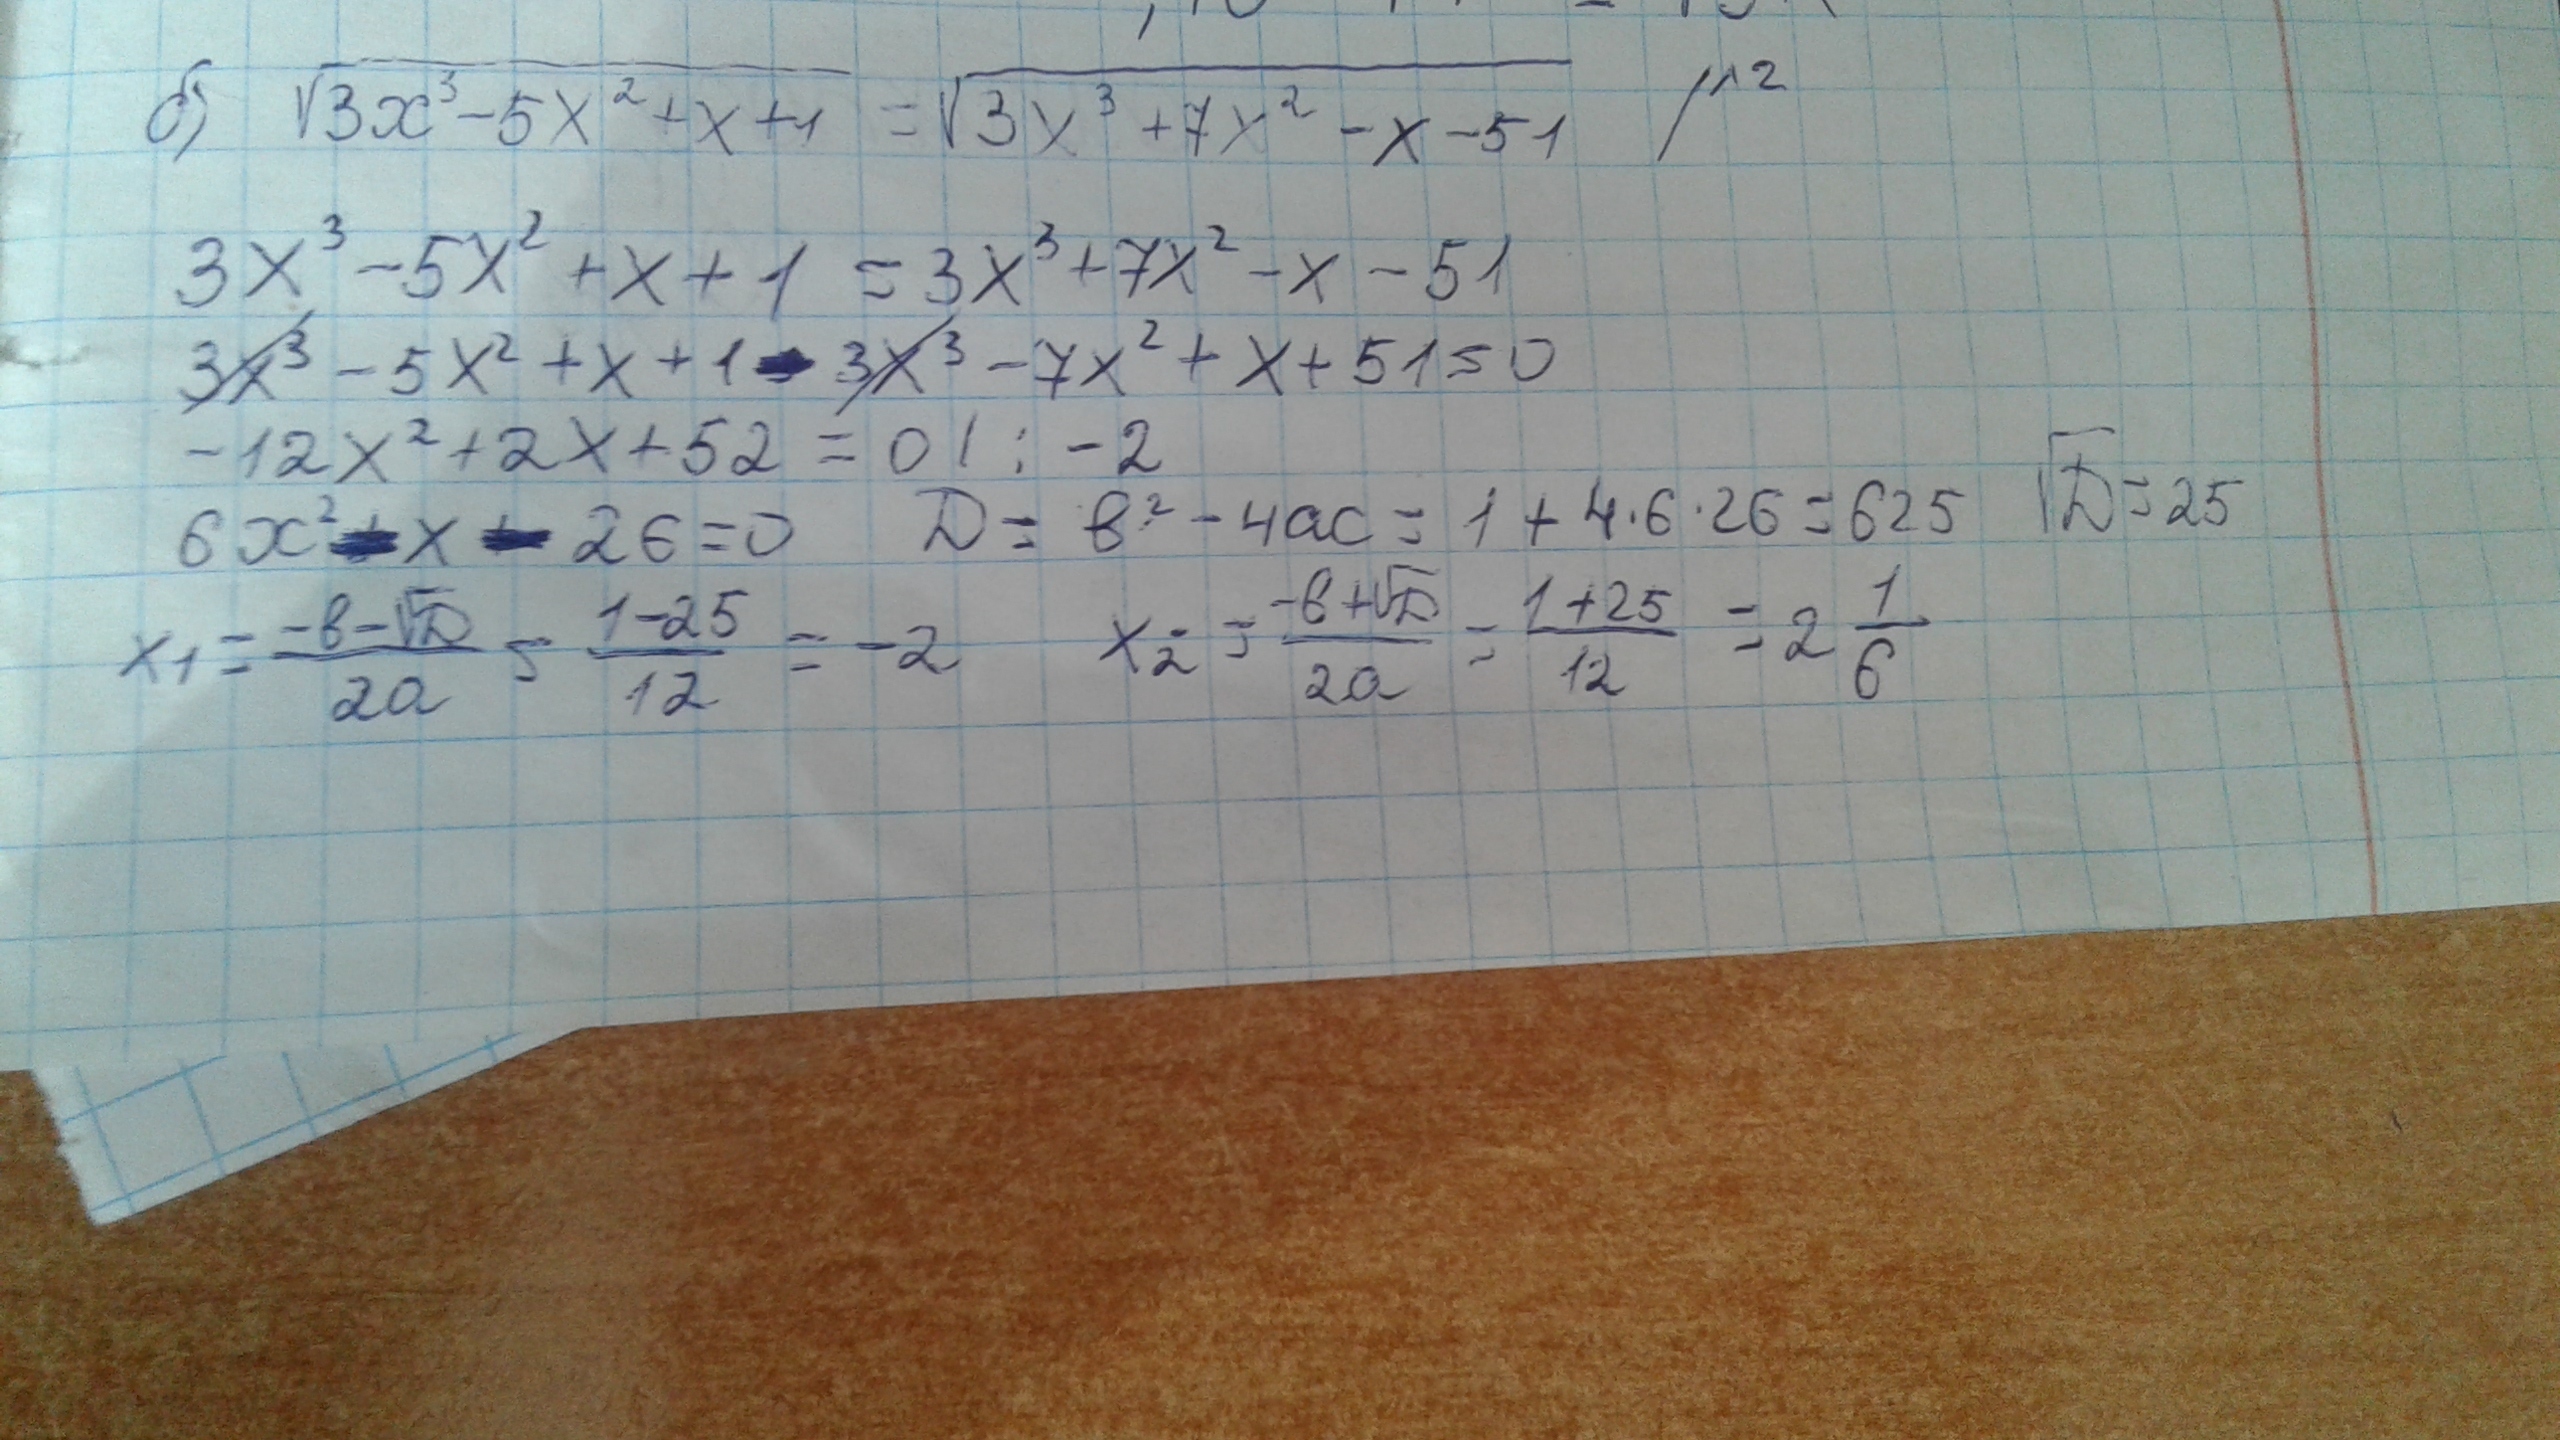 б) √3x³-5x²+x+1 = √3x³+7x²-x-51 /^2
3x³-5x²+x+1 = 3x³+7x²-x-51
3x³-5x²+x+1-3x³-7x²+x+51=0
-12x²+2x+52=0 |:-2
6x²-x-26=0 D= в²-4ac= 1+4·6·26=625 √D=25
x₁= (-в-√D)/2a = (1-25)/12 = -2 x₂= = (-в+√D)/2a = (1+25)/12 = 2 1/6